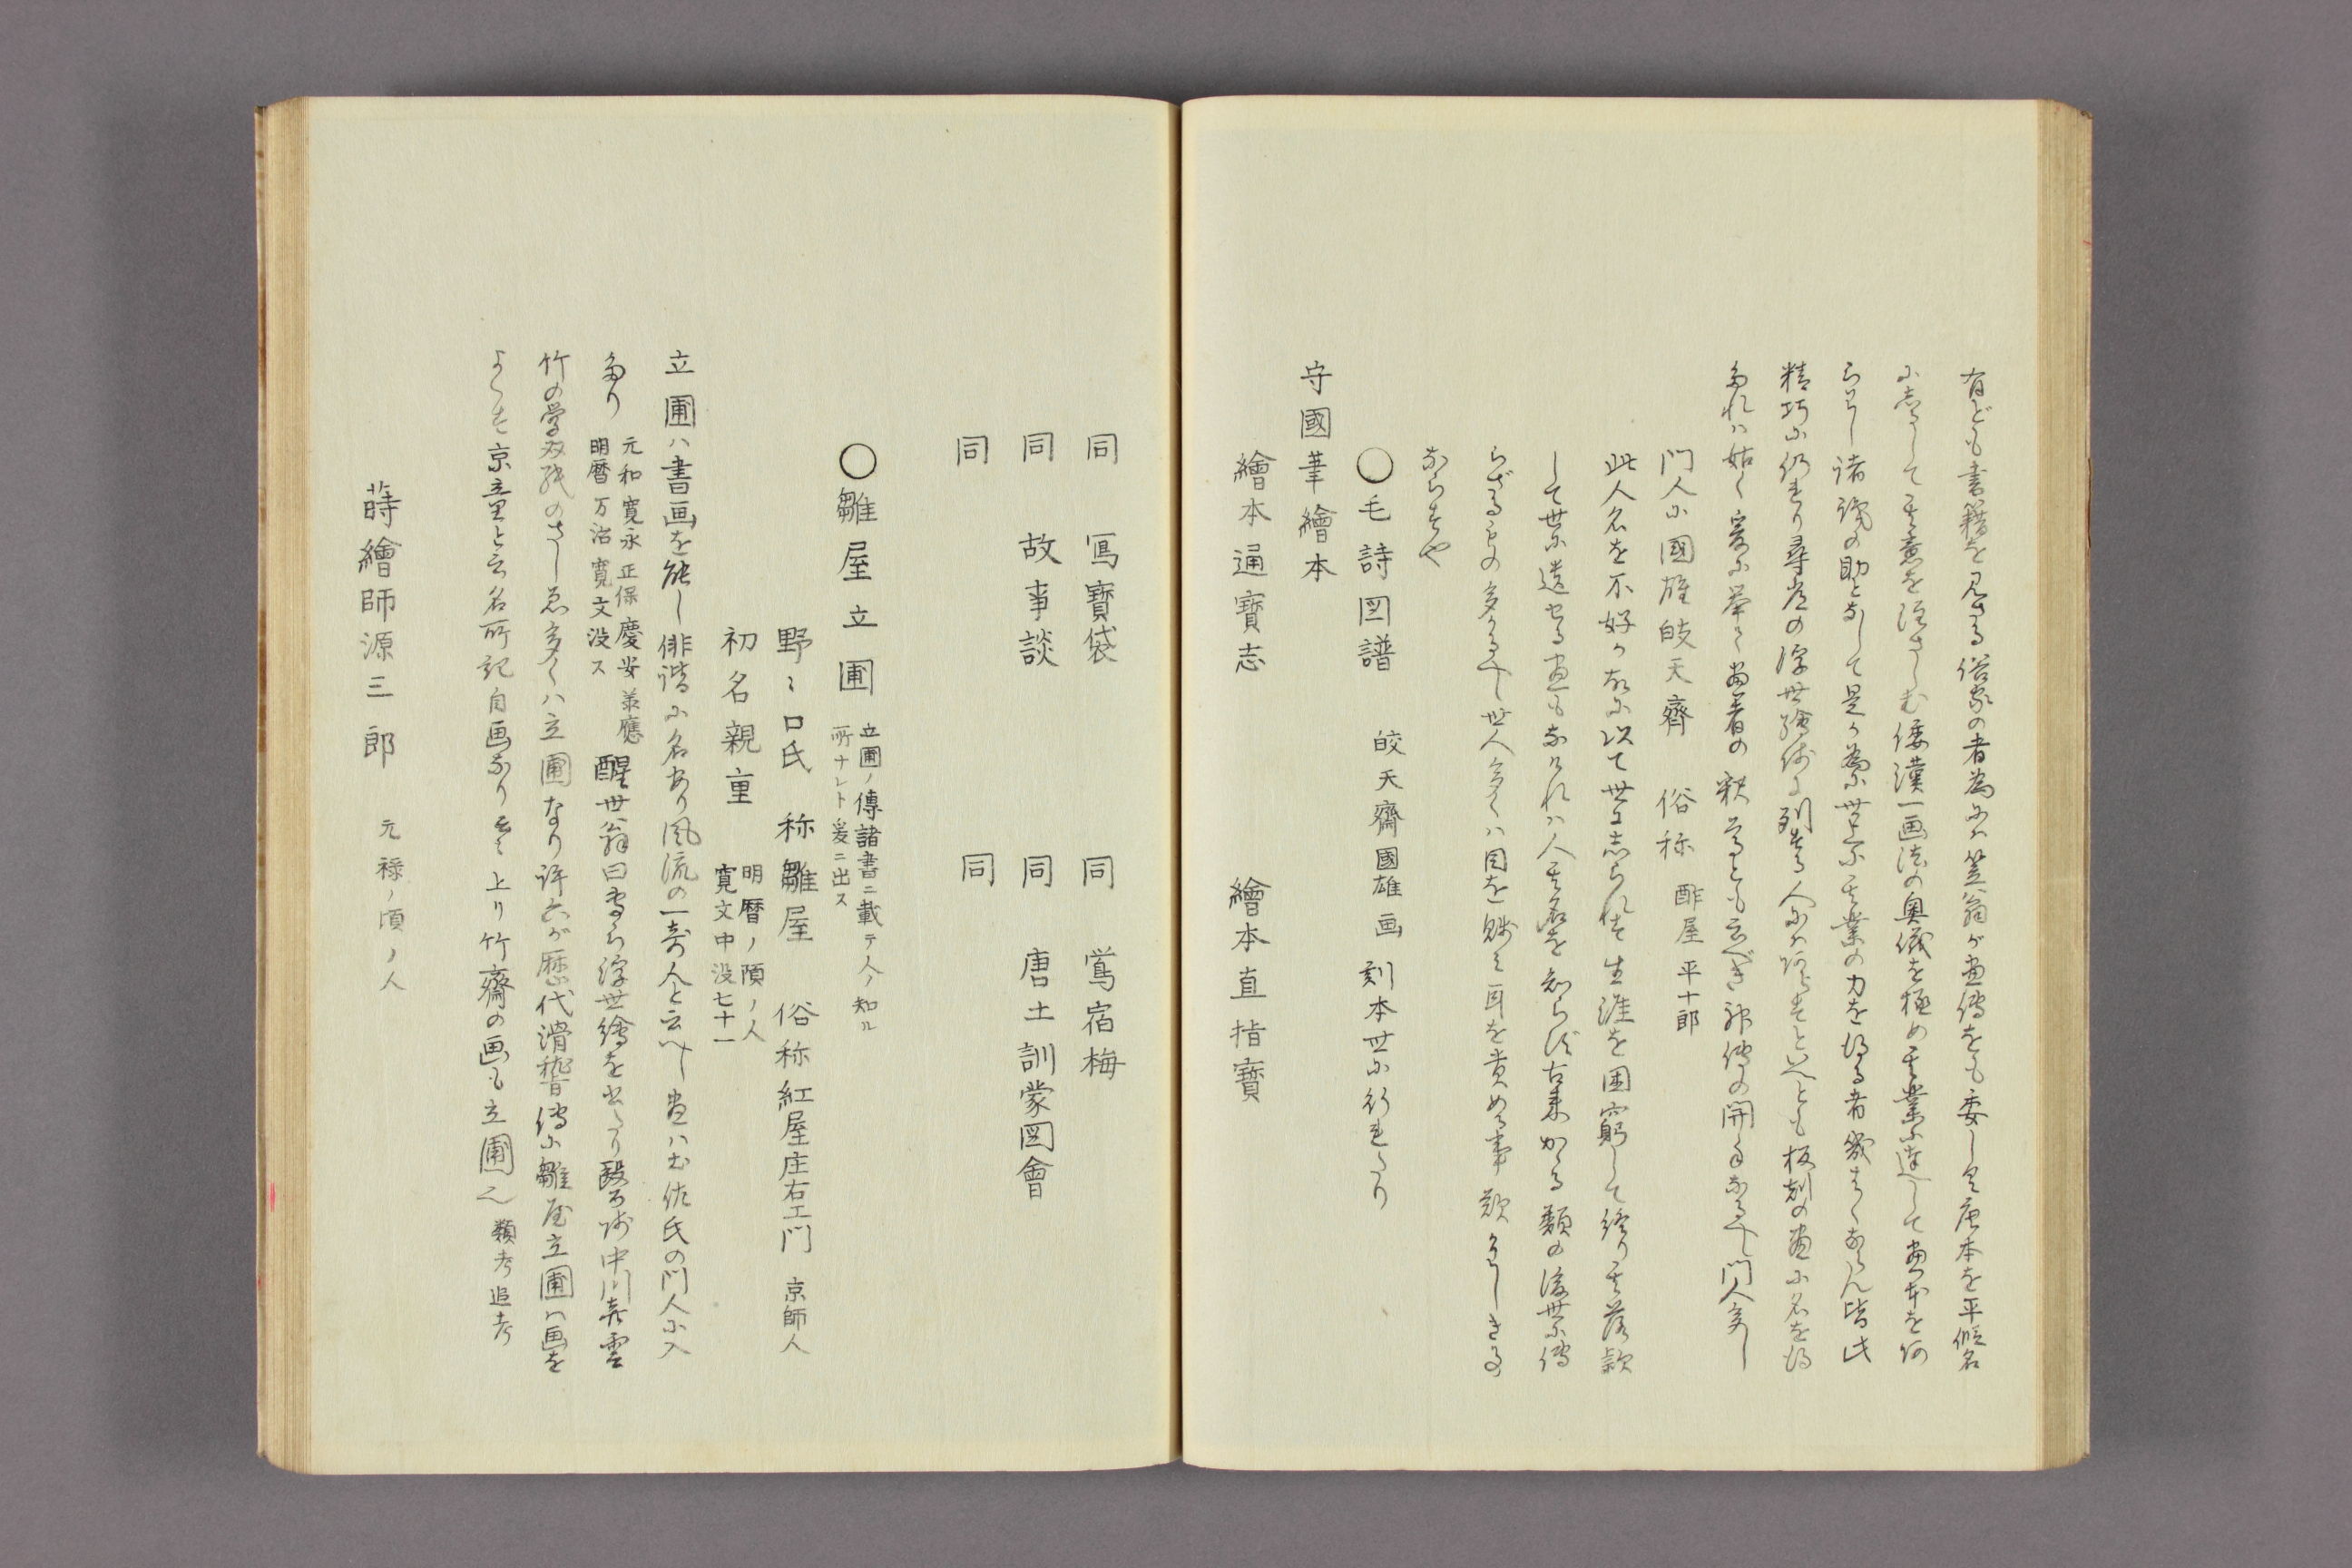 有ども書籍を見さる俗家の者為にハ笠翁が画傳をも委しく唐本を平假名
にあらして其意を注さしむ倭漢一画法の奥儀を極め其業に達して画本を
らハし諸識の助となして是か為に世上に其業の力を得る者幾はくならん皆此
精巧に仍れり尋常の浮世繪師に列する人にハ非すといへとも板刻の画に名を得
たれハ姑く爰に挙く画者の釈尊とも云べき祖傳の開手なるへし門人多し
門人に國雄皎天齊 俗称 酢屋平十郎
此人名を不好か故に以て世に志られす生涯を困窮して終り其落款
して世に遺せる画もなけれハ人其名を知らず古来かゝる類の後世に傳
らざるもの多かるへし世人多くハ目を賎ミ耳を貴める事歎かハしき事
ならすや
○毛詩図譜 皎天齋國雄画 刻本世に行れたり
守國筆繪本
繪本通寶志 繪本直指寶
同 寫寶袋 同 鶯宿梅
同 故事談 同 唐土訓蒙図會
同 同
○雛屋立圃 立圃ノ傳諸書ニ載テ人ノ知ル
所ナレト爰ニ出ス
野ミ口氏 称雛屋 俗称紅屋庄右エ門 京師人
初名親重 明暦ノ頃ノ人
寛文中没七十一
立圃ハ書画を能し俳諧に名あり風流の一奇人と云へし画ハ土佐氏の門人に入
たり 元和 寛永 正保 慶安 承應
明暦 万治 寛文没ス
醒世翁曰専ら浮世繪を出たり醫師中川喜雲
竹の学双紙のさしゑ多くハ立圃なり許六が歴代滑稽傳に雛屋立圃ハ画を
よくす京童と云名所記自画なり云々 上リ竹齋の画も立圃也 類考追考
蒔繪師源三郎 元禄ノ頃ノ人